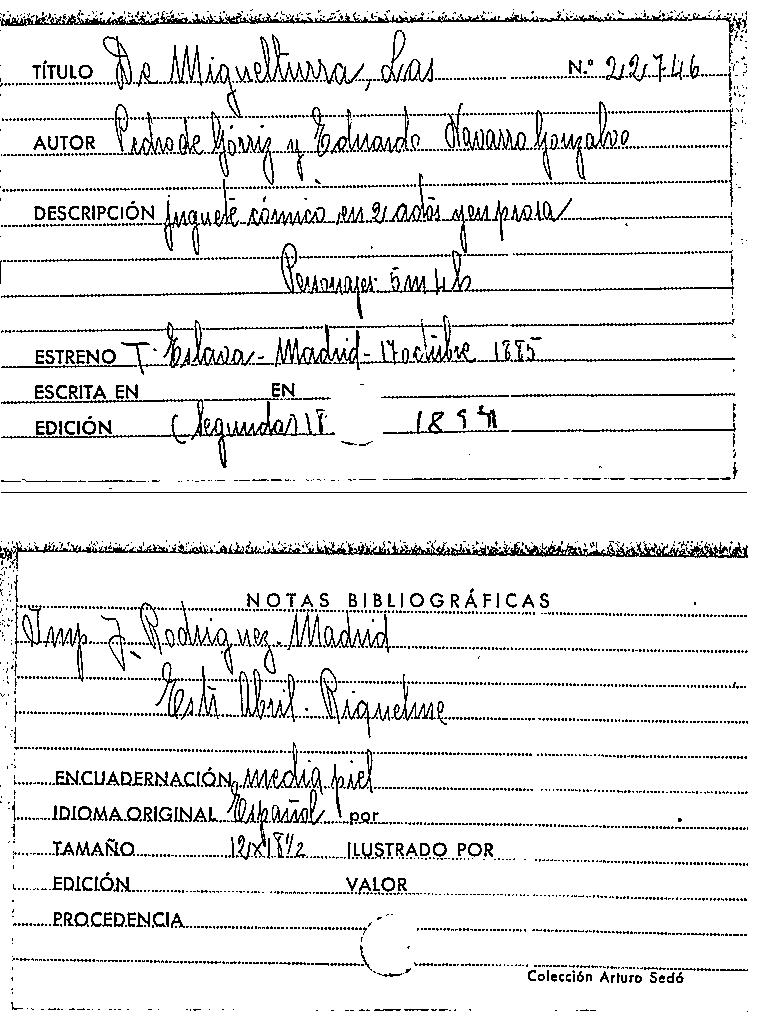 TÍTULO De Miguelturra, Las N.º 22746
AUTOR Pedro de Górriz y Eduardo Navarro Gonzalvo
DESCRIPCIÓN juguete cómico en 2 actos y en prosa
Personajes 5m 4h
ESTRENO T. Eslava - Madrid - 17 octubre 1885
ESCRITA EN EN
EDICIÓN (Segunda) 18
NOTAS BIBLIOGRÁFICAS
Imp J. Rodriguez - Madrid
Estr Abril - Riquelme
ENCUADERNACIÓN media piel
IDIOMA ORIGINAL Español por
TAMAÑO 12x18½ ILUSTRADO POR
EDICIÓN VALOR
PROCEDENCIA
Colección Arturo Sedó